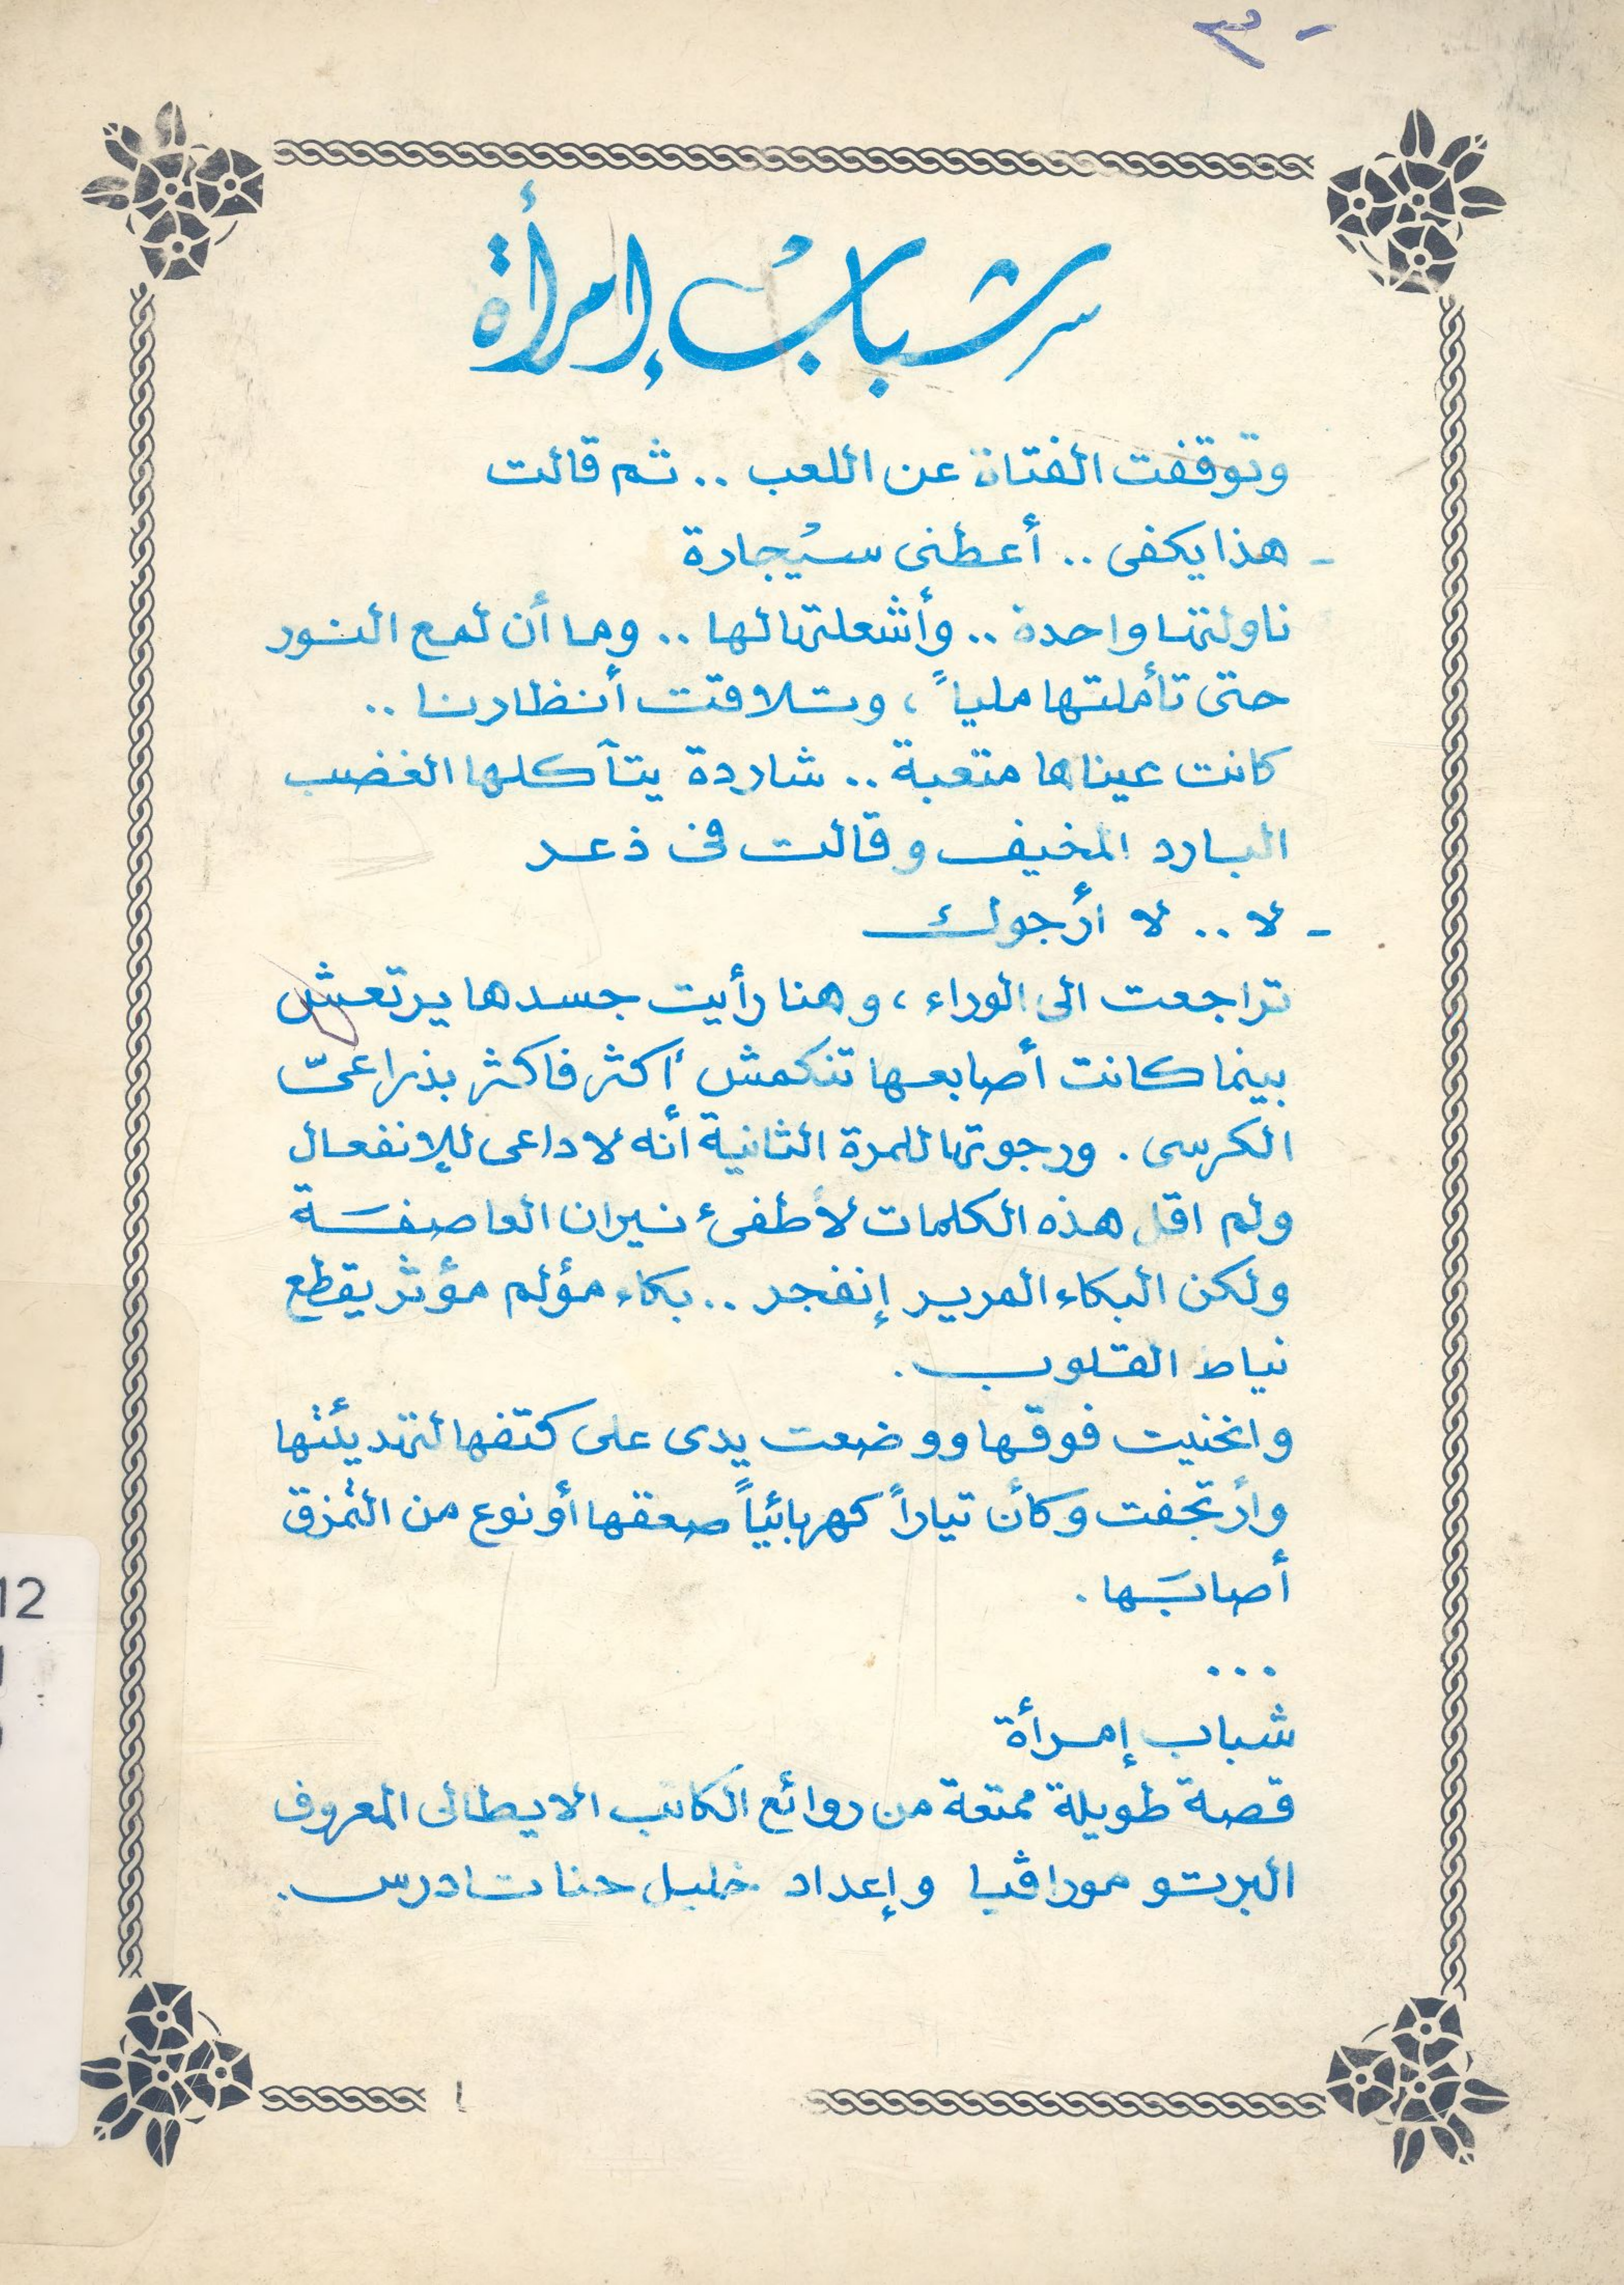 - ٣
شباب إمرأة
وتوقفت الفتاة عن اللعب .. ثم قالت
- هذا يكفى .. أعطنى سيُجارة
ناولتها واحدة .. وأشعلتها لها .. وما أن لمع النور
حتى تأملتها ملياً ، وتلاقت أنظارنا ..
كانت عيناها متعبة .. شاردة يتآكلها الغضب
البارد المخيف وقالت فى ذعر
- لا .. لا أرجوك
تراجعت الى الوراء ، وهنا رأيت جسدها يرتعش
بينما كانت أصابعها تنكمش أكثر فاكثر بذراعىّ
الكرسى . ورجوتها للمرة الثانية أنه لا داعى للإنفعال
ولم اقل هذه الكلمات لأطفىء نيران العاصفَة
ولكن البكاء المرير إنفجر .. بكاء مؤلم مؤثر يقطع
نياط القلوب .
وانحنيت فوقها ووضعت يدى على كتفها لتهديئتها
وأرتجفت وكأن تياراً كهربائياً صعقها أو نوع من التمزق
أصابَها .
...
شباب إمرأة
قصة طويلة ممتعة من روائع الكاتب الايطالى المعروف
البرتو موراڤيا وإعداد خليل حنا تادرس .
12